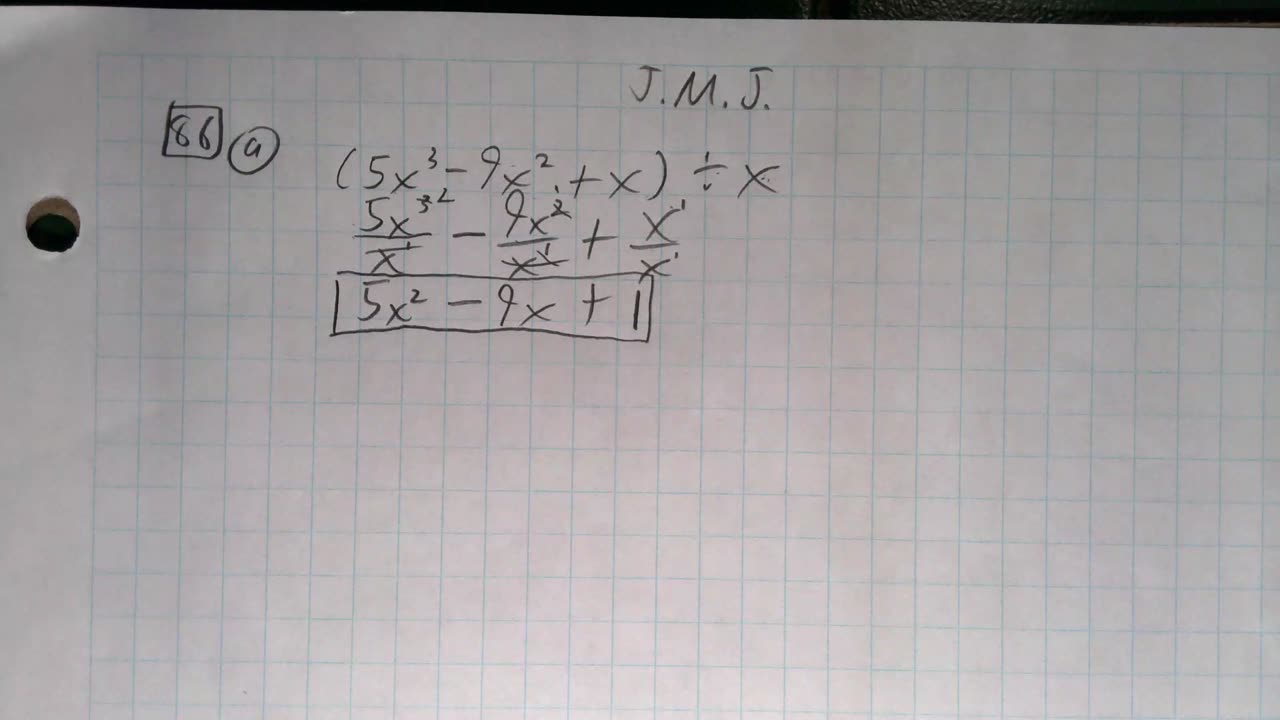 J.M.J.
86 a (5x³ - 9x² + x) ÷ x
5x³ ²/x¹ - 9x²/x¹ + x¹/x¹
5x² - 9x + 1